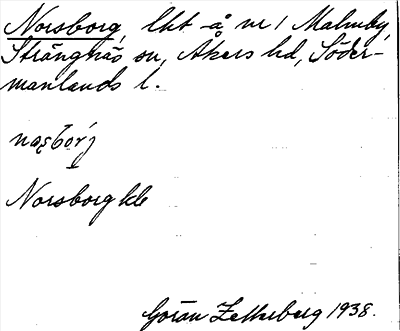 Norsborg, lht å nr 1 Malmby,
Strängnäs sn, Åkers hd, Söder-
manlands l.
nas̨bórj
Norsborg kle
Göran Zetterberg 1938.